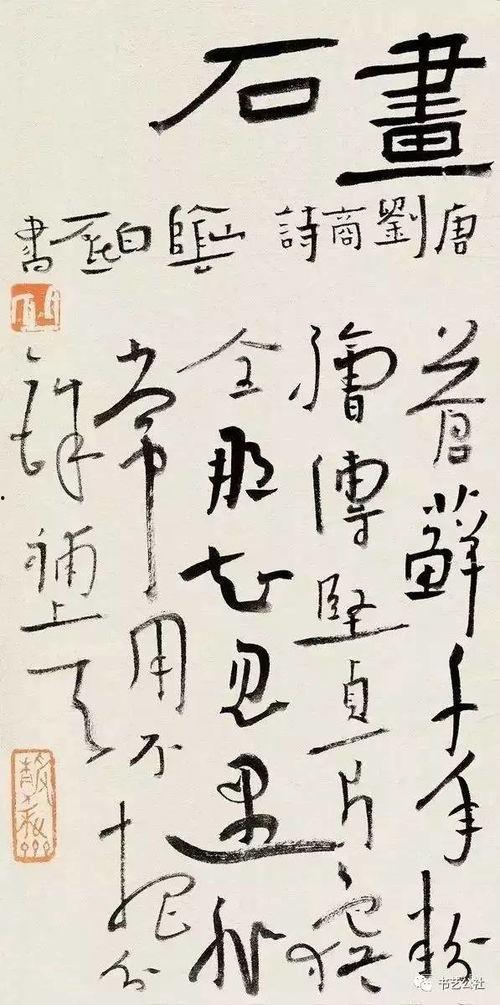 畫石
唐劉商詩 白砥書
蒼蘚千年粉
繪傳堅貞一片色猶
全那知忽遇非
常用不把分
銖補上天
书艺公社